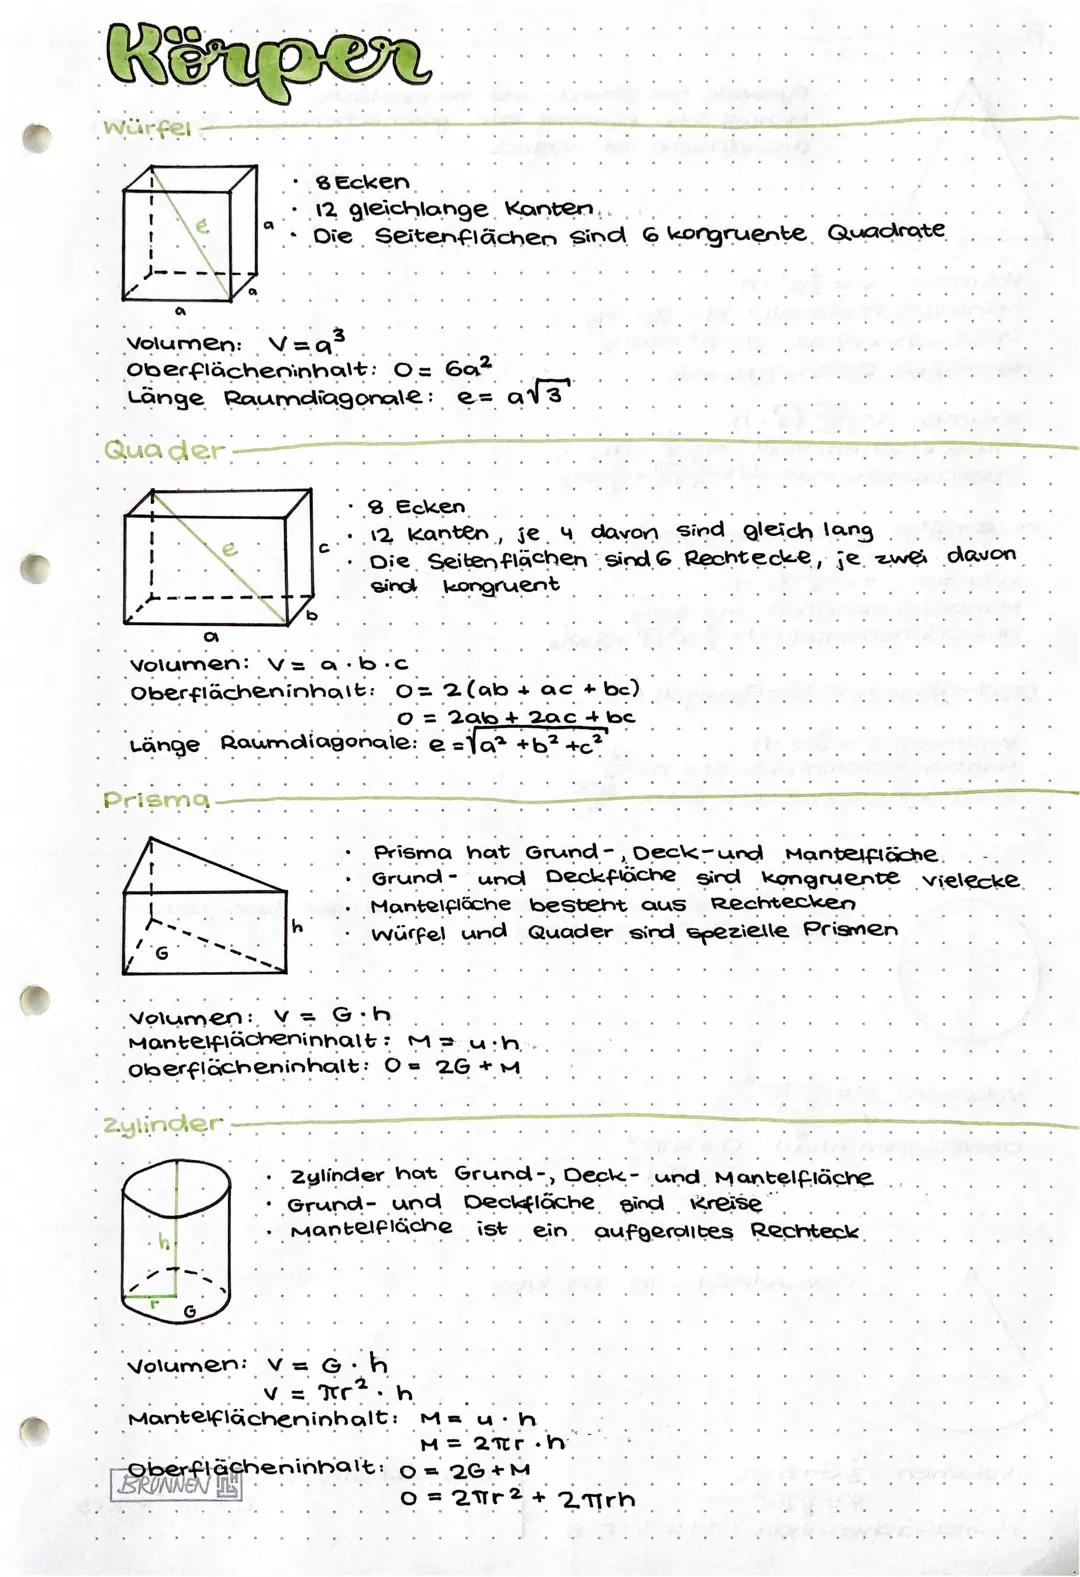 Körper
Würfel
e
a
a
a
· 8 Ecken
· 12 gleichlange Kanten
· Die Seitenflächen sind 6 kongruente Quadrate
Volumen: V = a³
Oberflächeninhalt: O = 6a²
Länge Raumdiagonale: e = a√3
Quader
e
c
b
a
· 8 Ecken
· 12 Kanten, je 4 davon sind gleich lang
· Die Seitenflächen sind 6 Rechtecke, je zwei davon
sind kongruent
Volumen: V = a · b · c
Oberflächeninhalt: O = 2(ab + ac + bc)
O = 2ab + 2ac + bc
Länge Raumdiagonale: e = √a² + b² + c²
Prisma
h
G
· Prisma hat Grund-, Deck- und Mantelfläche
· Grund- und Deckfläche sind kongruente Vielecke
· Mantelfläche besteht aus Rechtecken
· Würfel und Quader sind spezielle Prismen
Volumen: V = G · h
Mantelflächeninhalt: M = u · h
Oberflächeninhalt: O = 2G + M
Zylinder
h
r
G
· Zylinder hat Grund-, Deck- und Mantelfläche
· Grund- und Deckfläche sind Kreise
· Mantelfläche ist ein aufgerolltes Rechteck
Volumen: V = G · h
V = πr² · h
Mantelflächeninhalt: M = u · h
M = 2πr · h
Oberflächeninhalt: O = 2G + M
BRUNNEN
O = 2πr² + 2πrh